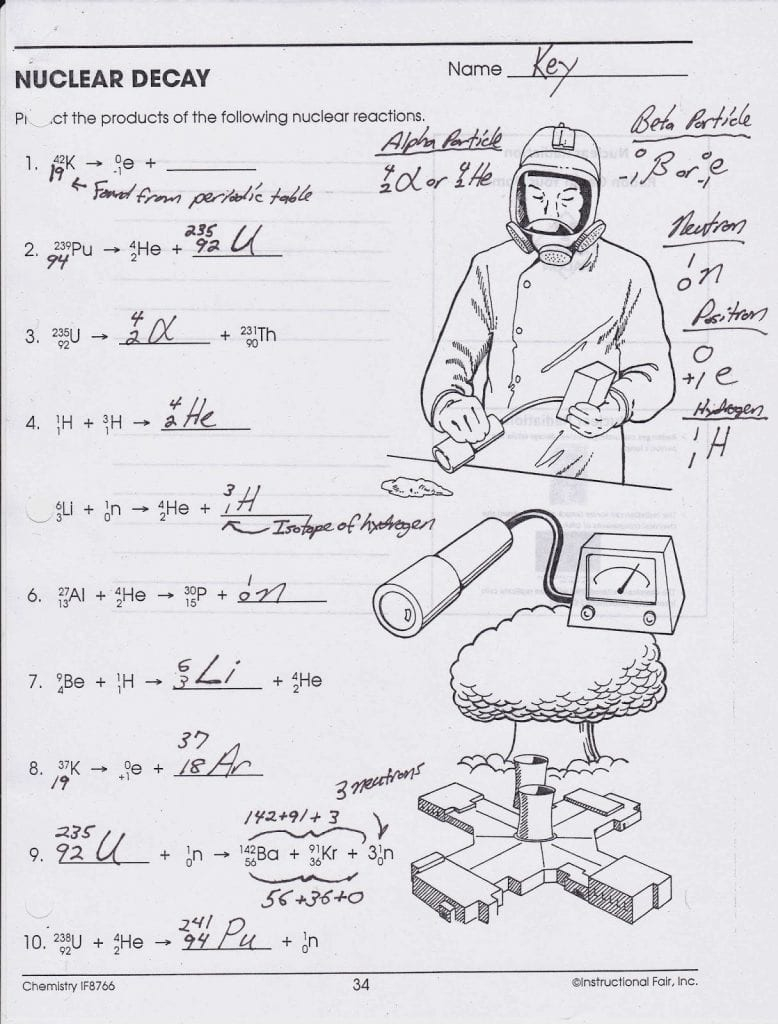 Name Key
NUCLEAR DECAY
ct the products of the following nuclear reactions.
Alpha Particle
⁴₂α or ⁴₂He
Beta Particle
⁰₋₁β or ⁰₋₁e
Neutron
¹₀n
Positron
⁰₊₁e
Hydrogen
¹₁H
1. ⁴²₁₉K → ⁰₋₁e + ________
← Found from periodic table
2. ²³⁹₉₄Pu → ⁴₂He + ²³⁵₉₂U
3. ²³⁵₉₂U → ⁴₂α + ²³¹₉₀Th
4. ¹₁H + ³₁H → ⁴₂He
⁶₃Li + ¹₀n → ⁴₂He + ³₁H
Isotope of hydrogen
6. ²⁷₁₃Al + ⁴₂He → ³⁰₁₅P + ¹₀n
7. ⁹₄Be + ¹₁H → ⁶₃Li + ⁴₂He
8. ³⁷₁₉K → ⁰₊₁e + ³⁷₁₈Ar
3 neutrons
142+91+3
9. ²³⁵₉₂U + ¹₀n → ¹⁴²₅₆Ba + ⁹¹₃₆Kr + 3¹₀n
56+36+0
10. ²³⁸₉₂U + ⁴₂He → ²⁴¹₉₄Pu + ¹₀n
Chemistry IF8766
34
©Instructional Fair, Inc.